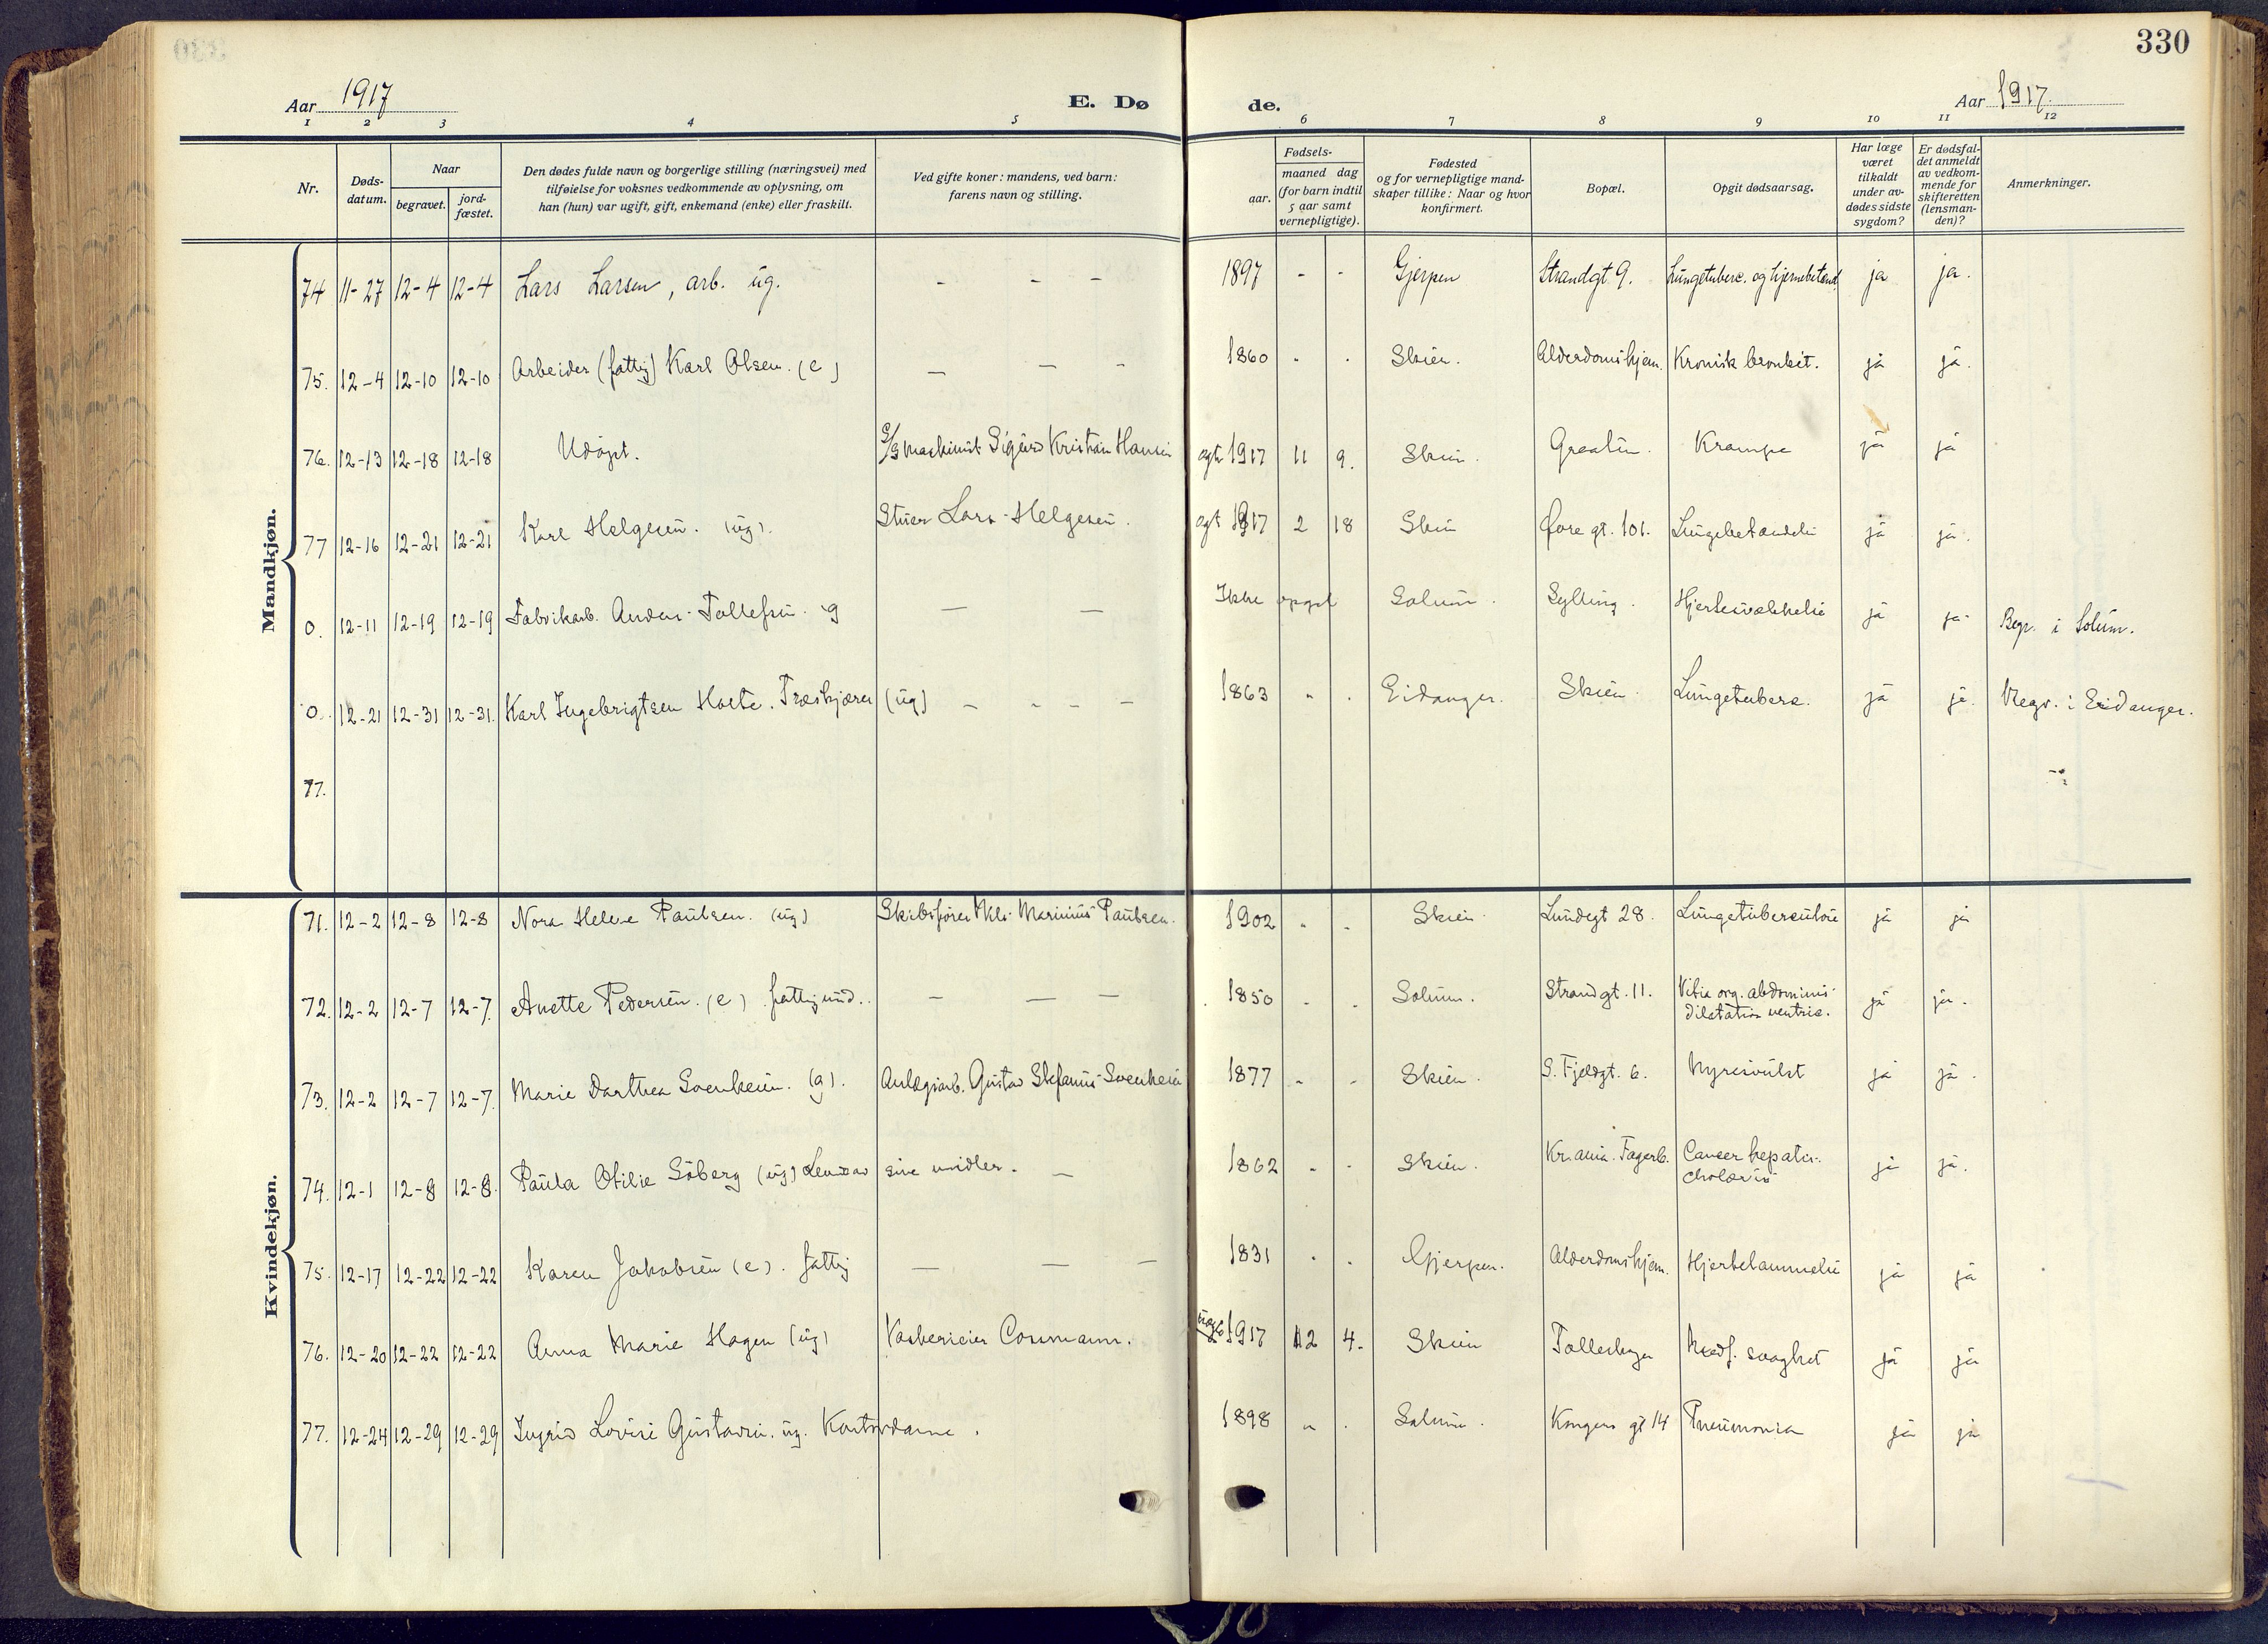 330
Aar 1917
E. Dø de.
Aar 1917.
1 2 3 4 5 6 7 8 9 10 11 12
Nr.
Døds-
datum.
Naar
begravet.
jord-
fæstet.
Den dødes fulde navn og borgerlige stilling (næringsvei) med
tilføielse for voksnes vedkommende av oplysning, om
han (hun) var ugift, gift, enkemand (enke) eller fraskilt.
Ved gifte koner: mandens, ved barn:
farens navn og stilling.
Fødsels-
aar.
maaned dag
(for barn indtil
5 aar samt
vernepligtige).
Fødested
og for vernepligtige mand-
skaper tillike: Naar og hvor
konfirmert.
Bopæl.
Opgit dødsaarsag.
Har læge
været
tilkaldt
under av-
dødes sidste
sygdom?
Er dødsfal-
det anmeldt
av vedkom-
mende for
skifteretten
(lensman-
den)?
Anmerkninger.
Mandkjøn.
74 11-27 12-4 12-4 Lars Larsen, arb. ug. - - - 1897 - - Gjerpen Strandgt 9. Lungetuberc. og hjernebetænd. ja ja.
75. 12-4 12-10 12-10 Arbeider (fattig) Karl Olsen. (e) — — - 1860 - . Skien. Alderdomshjem. Kronisk bronkit. ja ja.
76. 12-13 12-18 12-18 Udøpt. Maskinist Sigurd Kristian Hansen egte 1917 11 9. Skien. Graaten. Krampe ja ja
77 12-16 12-21 12-21 Karl Helgesen. (ug). Stuer Lars Helgesen. egt 1917 2 18 Skien gt. 101. Lungebetændelse ja ja.
0. 12-11 12-19 12-19 Fabrikarb. Anders Tollefsen g — — Ikke opgit Solum. Sylling. Hjertesvækkelse ja ja. Begr. i Solum.
0. 12-21 12-31 12-31. Karl Ingebrigtsen Holte. Træskjærer (ug) - - - - 1863 " . Eidanger. Skien. Lungetuberc. ja ja. Begr. i Eidanger.
77.
Kvindekjøn.
71. 12-2 12-8 12-8 Nora Helene Paulsen. (ug) Skibsfører Nils Marinius Paulsen. 1902 " . Skien. Lundegt 28. Lungetuberculose ja ja
72. 12-2 12-7 12-7. Anette Pedersen. (e) fattigund. — — — 1850 - . Solum. Strandgt. 11. Vitia org. abdominis
dilatation ventric. ja ja.
73. 12-2 12-7 12-7. Marie Darthea Svenkesen. (g). Anlægsarb. Gustav Stefanus Svenkesen 1877 - - Skien. S. Fjeldgt. 6. Nyresvulst ja ja.
74. 12-1 12-8 12-8. Paula Otilie Söberg (ug) Lever av sine midler. — 1862 " - Skien. Kr.ania. Fagerb. Cancer hepatis
ja ja.
75. 12-17 12-22 12-22 Karen Jakobsen (e). fattig — — — 1831 . . Gjerpen. Alderdomshjem. Hjertelammelse ja ja
76. 12-20 12-22 12-22 Anna Marie Hagen (ug) 1917 12 4. Skien Medf. svaghet ja ja
77. 12-24 12-29 12-29 Ingrid Lovise Gustavsen. ug. Kontordame. 1898 " . Solum. Kongens gt 14 Pneumonia ja ja